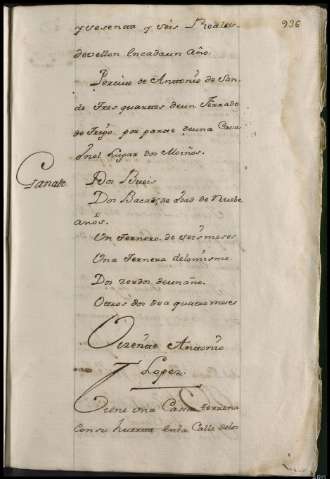 936
y sesenta y seis Reales
de vellon en cada un Año.
Percive de Antonio de San-
de tres quartas de un Ferrado
de trigo, por parte de una Casa
en el Lugar dos Moiños.
Ganado
Dos Bueis
Dos Bacas, de hedad de Nuebe
años.
Un Ternero, de seis meses
Una Ternera de lo mismo
Dos zerdos de un año
Otros dos de a quatro meses
Vizente Antonio
Lopez
Tiene una Casa terrena
con su huerta en la Calle de los